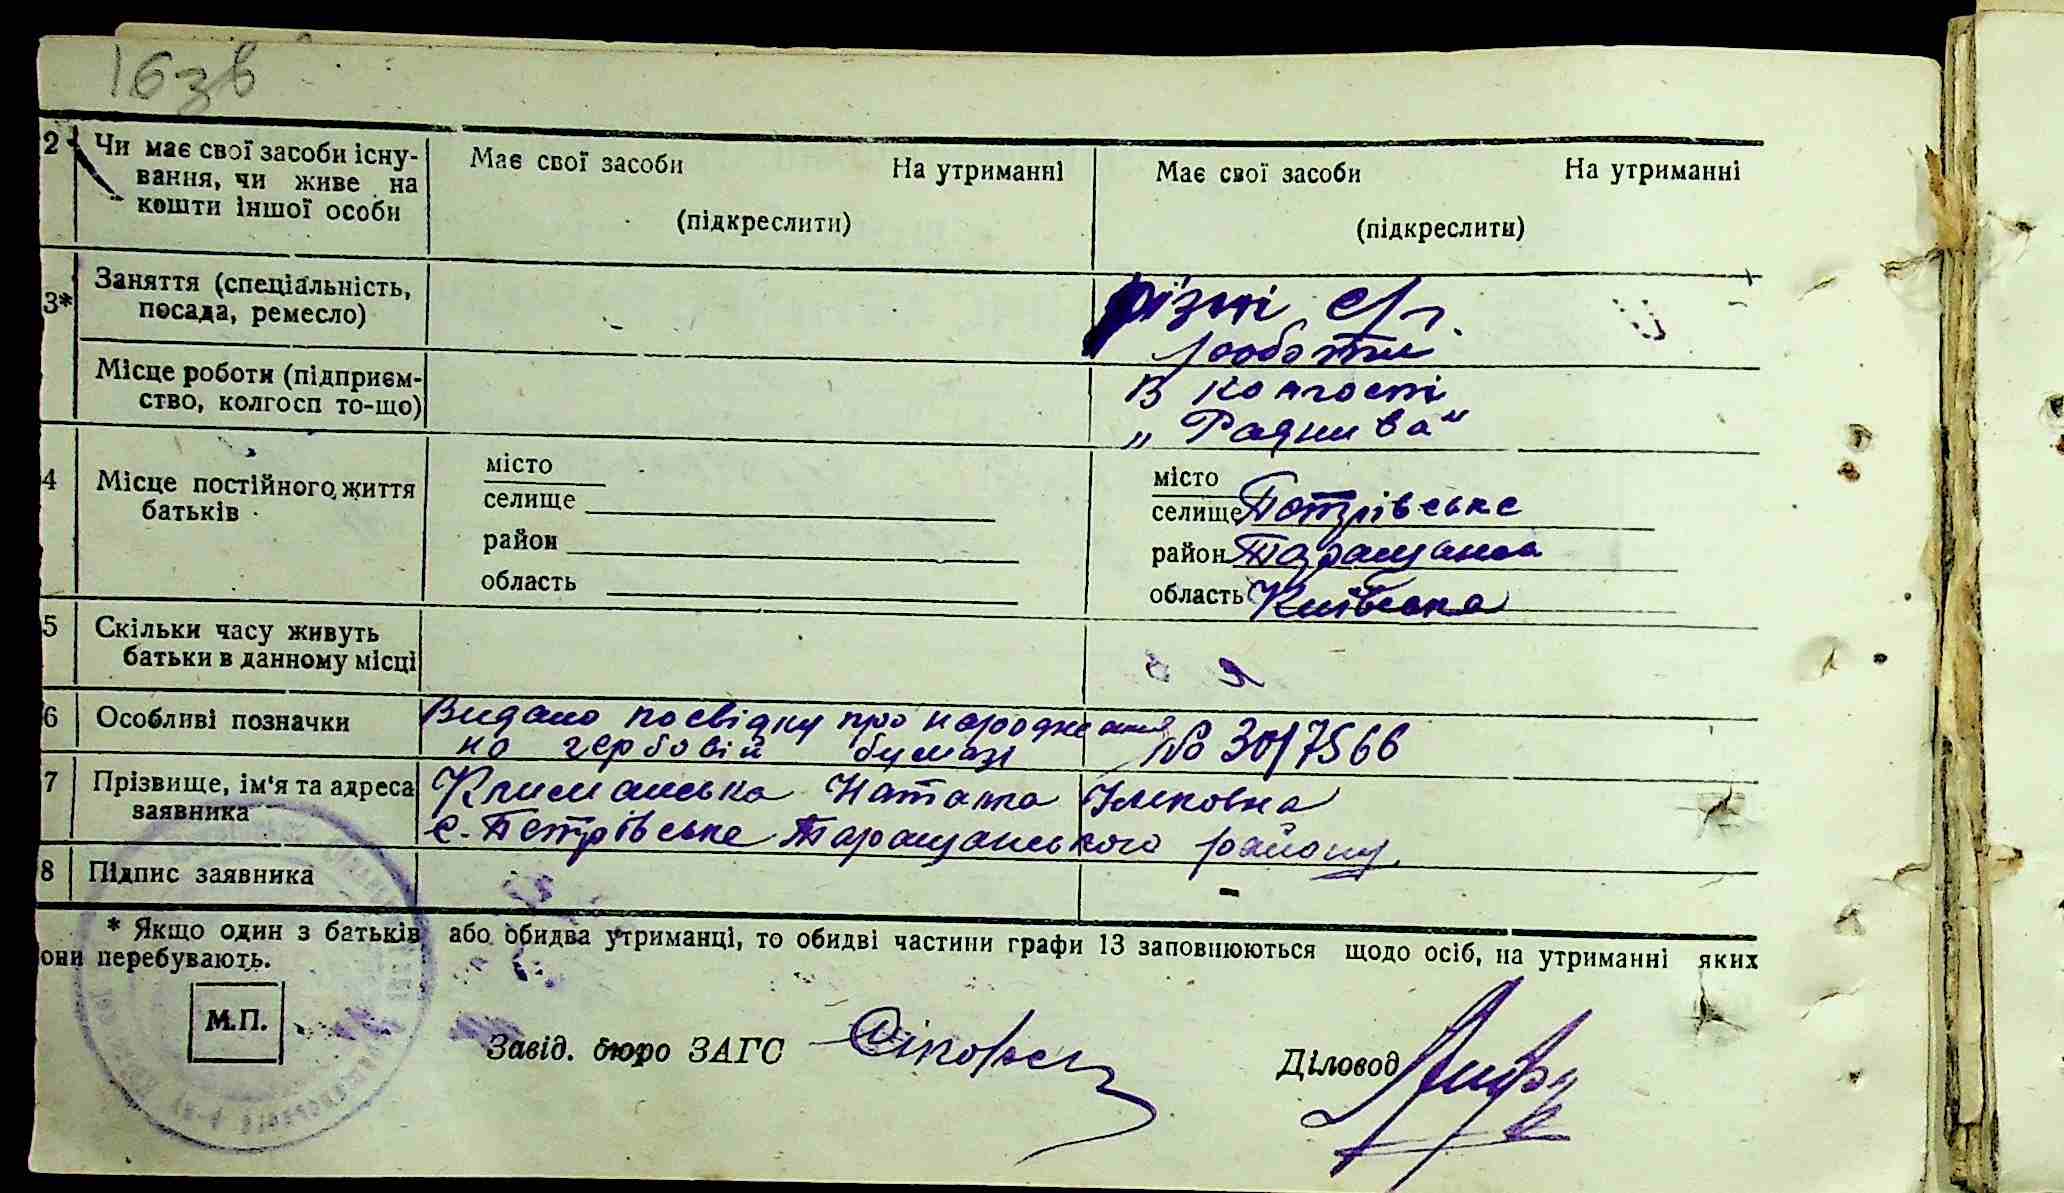 16зв
2 Чи має свої засоби існу-
вання, чи живе на
кошти іншої особи
Має свої засоби На утриманні
(підкреслити)
Має свої засоби На утриманні
(підкреслити)
3* Заняття (спеціальність,
посада, ремесло)
різні с/г.
роботи
Місце роботи (підприєм-
ство, колгосп то-що)
В колгоспі
„Радянива"
4 Місце постійного життя
батьків
місто
селище
район
область
місто
селище Петрівське
район Таращанськ
область Київська
5 Скільки часу живуть
батьки в данному місці
6 Особливі позначки
Видано посвідку про народження № 30/7566
на гербовій бумазі
7 Прізвище, ім'я та адреса
заявника
Климанська Наталка
с. Петрівське Таращанського району.
8 Підпис заявника
-
* Якщо один з батьків або обидва утриманці, то обидві частини графи 13 заповнюються щодо осіб, на утриманні яких
они перебувають.
М.П.
Завід. бюро ЗАГС
Діловод